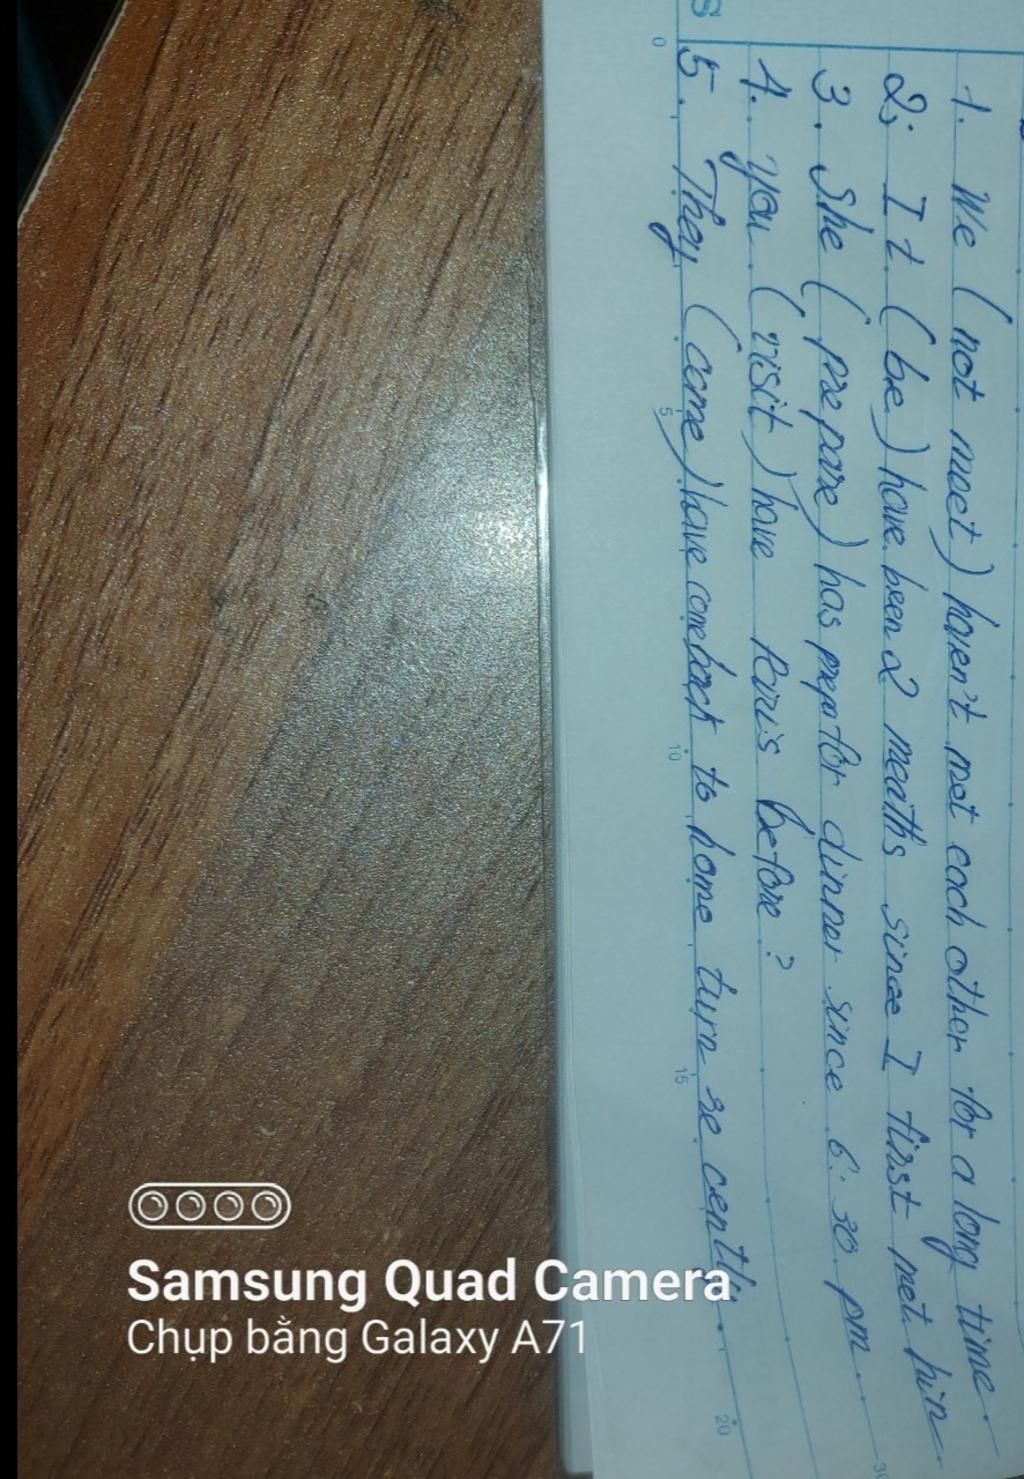 1. We (not meet) haven't met each other for a long time.
2; It (be) have been 2 months since I first met him
3. She (prepare) has prepa for dinner since 6:30 pm...
4. you (visit) have Paris before?
5. They (come) have come back to home turn se cently.
0
5
10
15
20
Samsung Quad Camera
Chụp bằng Galaxy A71